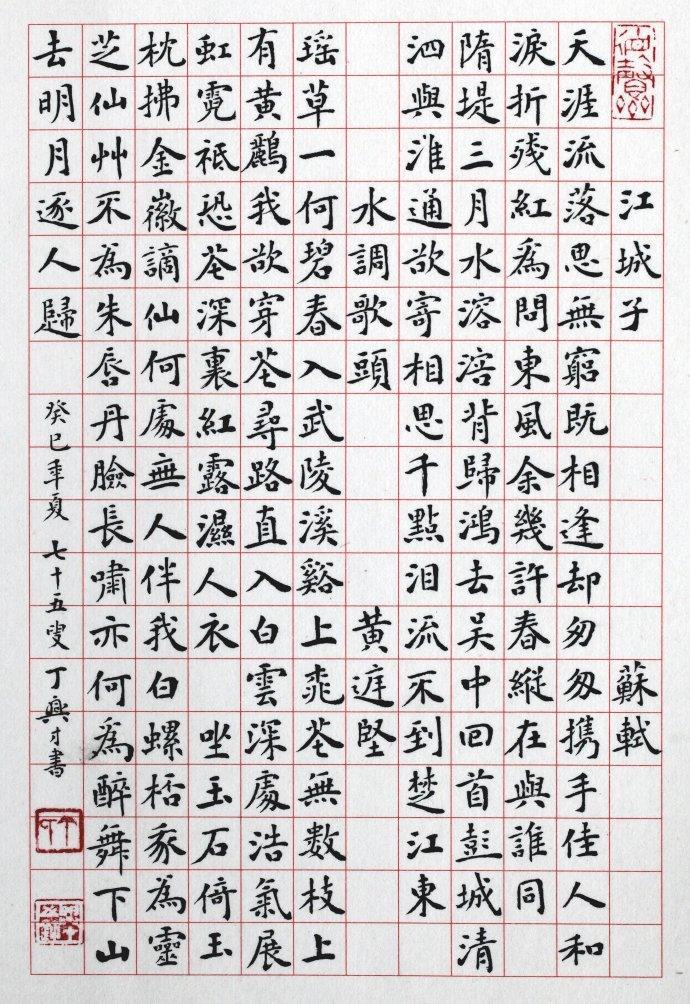 江城子 蘇軾
天涯流落思無窮既相逢却匆匆携手佳人和
淚折殘紅爲問東風余幾許春縱在與誰同
隋堤三月水溶溶背歸鴻去吴中回首彭城清
泗與淮通欲寄相思千點泪流不到楚江東
水調歌頭 黄庭堅
瑶草一何碧春入武陵溪谿上桃花無数枝上
有黄鸝我欲穿花尋路直入白雲深處浩氣展
虹霓祗恐花深裏紅露濕人衣 坐玉石倚玉
枕拂金徽謫仙何處無人伴我白螺桮我為靈
芝仙艸不為朱唇丹臉長嘯亦何為醉舞下山
去明月逐人歸 癸巳年夏 七十五叟 丁興才書